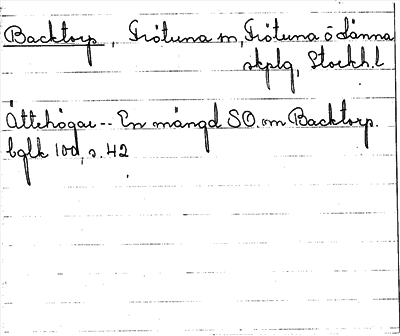 Backtorp, Frötuna sn, Frötuna o Länna
skplg, Stockh.l
Ättehögar -- En mängd SO. om Backtorp.
bglk 10d, s. 42